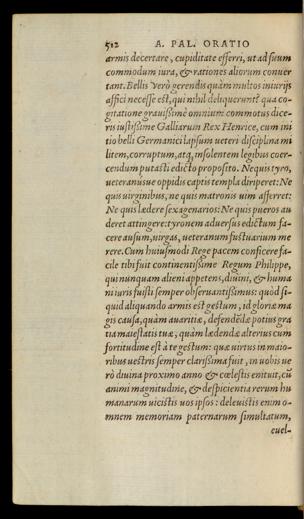 512 A. PAL. ORATIO
armis decertare, cupiditate efferri, ut ad suum
commodum iura, & rationes aliorum conuer
tant. Bellis verò gerendis quàm multos iniurijs
affici necesse est, qui nihil deliquerunt? qua co-
gitatione grauissimè omnium commotus dice-
ris iustissime Galliarum Rex Henrice, cum ini
tio belli Germanici lapsum ueteri disciplina mi
litem, corruptum, atq, insolentem legibus coer-
cendum putasti edicto proposito. Ne quis tyro,
ueteranúsue oppidis captis templa diriperet: Ne
quis uirginibus, ne quis matronis uim afferret:
Ne quis lædere sexagenarios: Ne quis pueros au
deret attingere: tyronem aduersus edictum fa-
cere ausum, uirgas, ueteranum fustuarium me
rere. Cum huiusmodi Rege pacem conficere fa-
cile tibi fuit continentissime Regum Philippe,
qui nunquam alieni appetens, diuini, & huma
ni iuris fuisti semper obseruantissimus: quòd si-
quid aliquando armis est gestum, id gloriæ ma
gis causa, quàm auaritiæ, defendēdæ potius gra
tia maiestatis tuæ, quàm lædendæ alterius cum
fortitudine est à te gestum: quæ uirtus in maio-
ribus uestris semper clarissima fuit, in uobis ue
rò diuina proximo anno & cœlestis enituit, cū
animi magnitudine, & despicientia rerum hu
manarum uicistis uos ipsos: deleuistis enim o-
mnem memoriam paternarum simultatum,
euel-